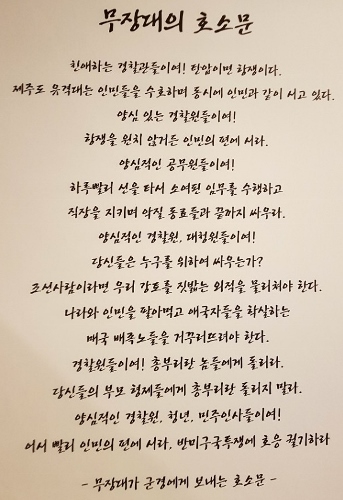 무장대의 호소문
친애하는 경찰관들이여! 탄압이면 항쟁이다.
제주도 유격대는 인민들을 수호하며 동시에 인민과 같이 서고 있다.
양심 있는 경찰원들이여!
항쟁을 원치 않거든 인민의 편에 서라.
양심적인 공무원들이여!
하루빨리 선을 타서 소여된 임무를 수행하고
직장을 지키며 악질 동료들과 끝까지 싸우라.
양심적인 경찰원, 대청원들이여!
당신들은 누구를 위하여 싸우는가?
조선사람이라면 우리 강토를 짓밟는 외적을 물리쳐야 한다.
나라와 인민을 팔아먹고 애국자들을 학살하는
매국 배족노들을 거꾸러뜨려야 한다.
경찰원들이여! 총부리란 놈들에게 돌리라.
당신들의 부모 형제들에게 총부리란 돌리지 말라.
양심적인 경찰원, 청년, 민주인사들이여!
어서 빨리 인민의 편에 서라, 반미구국투쟁에 호응 궐기하라
- 무장대가 군경에게 보내는 호소문 -